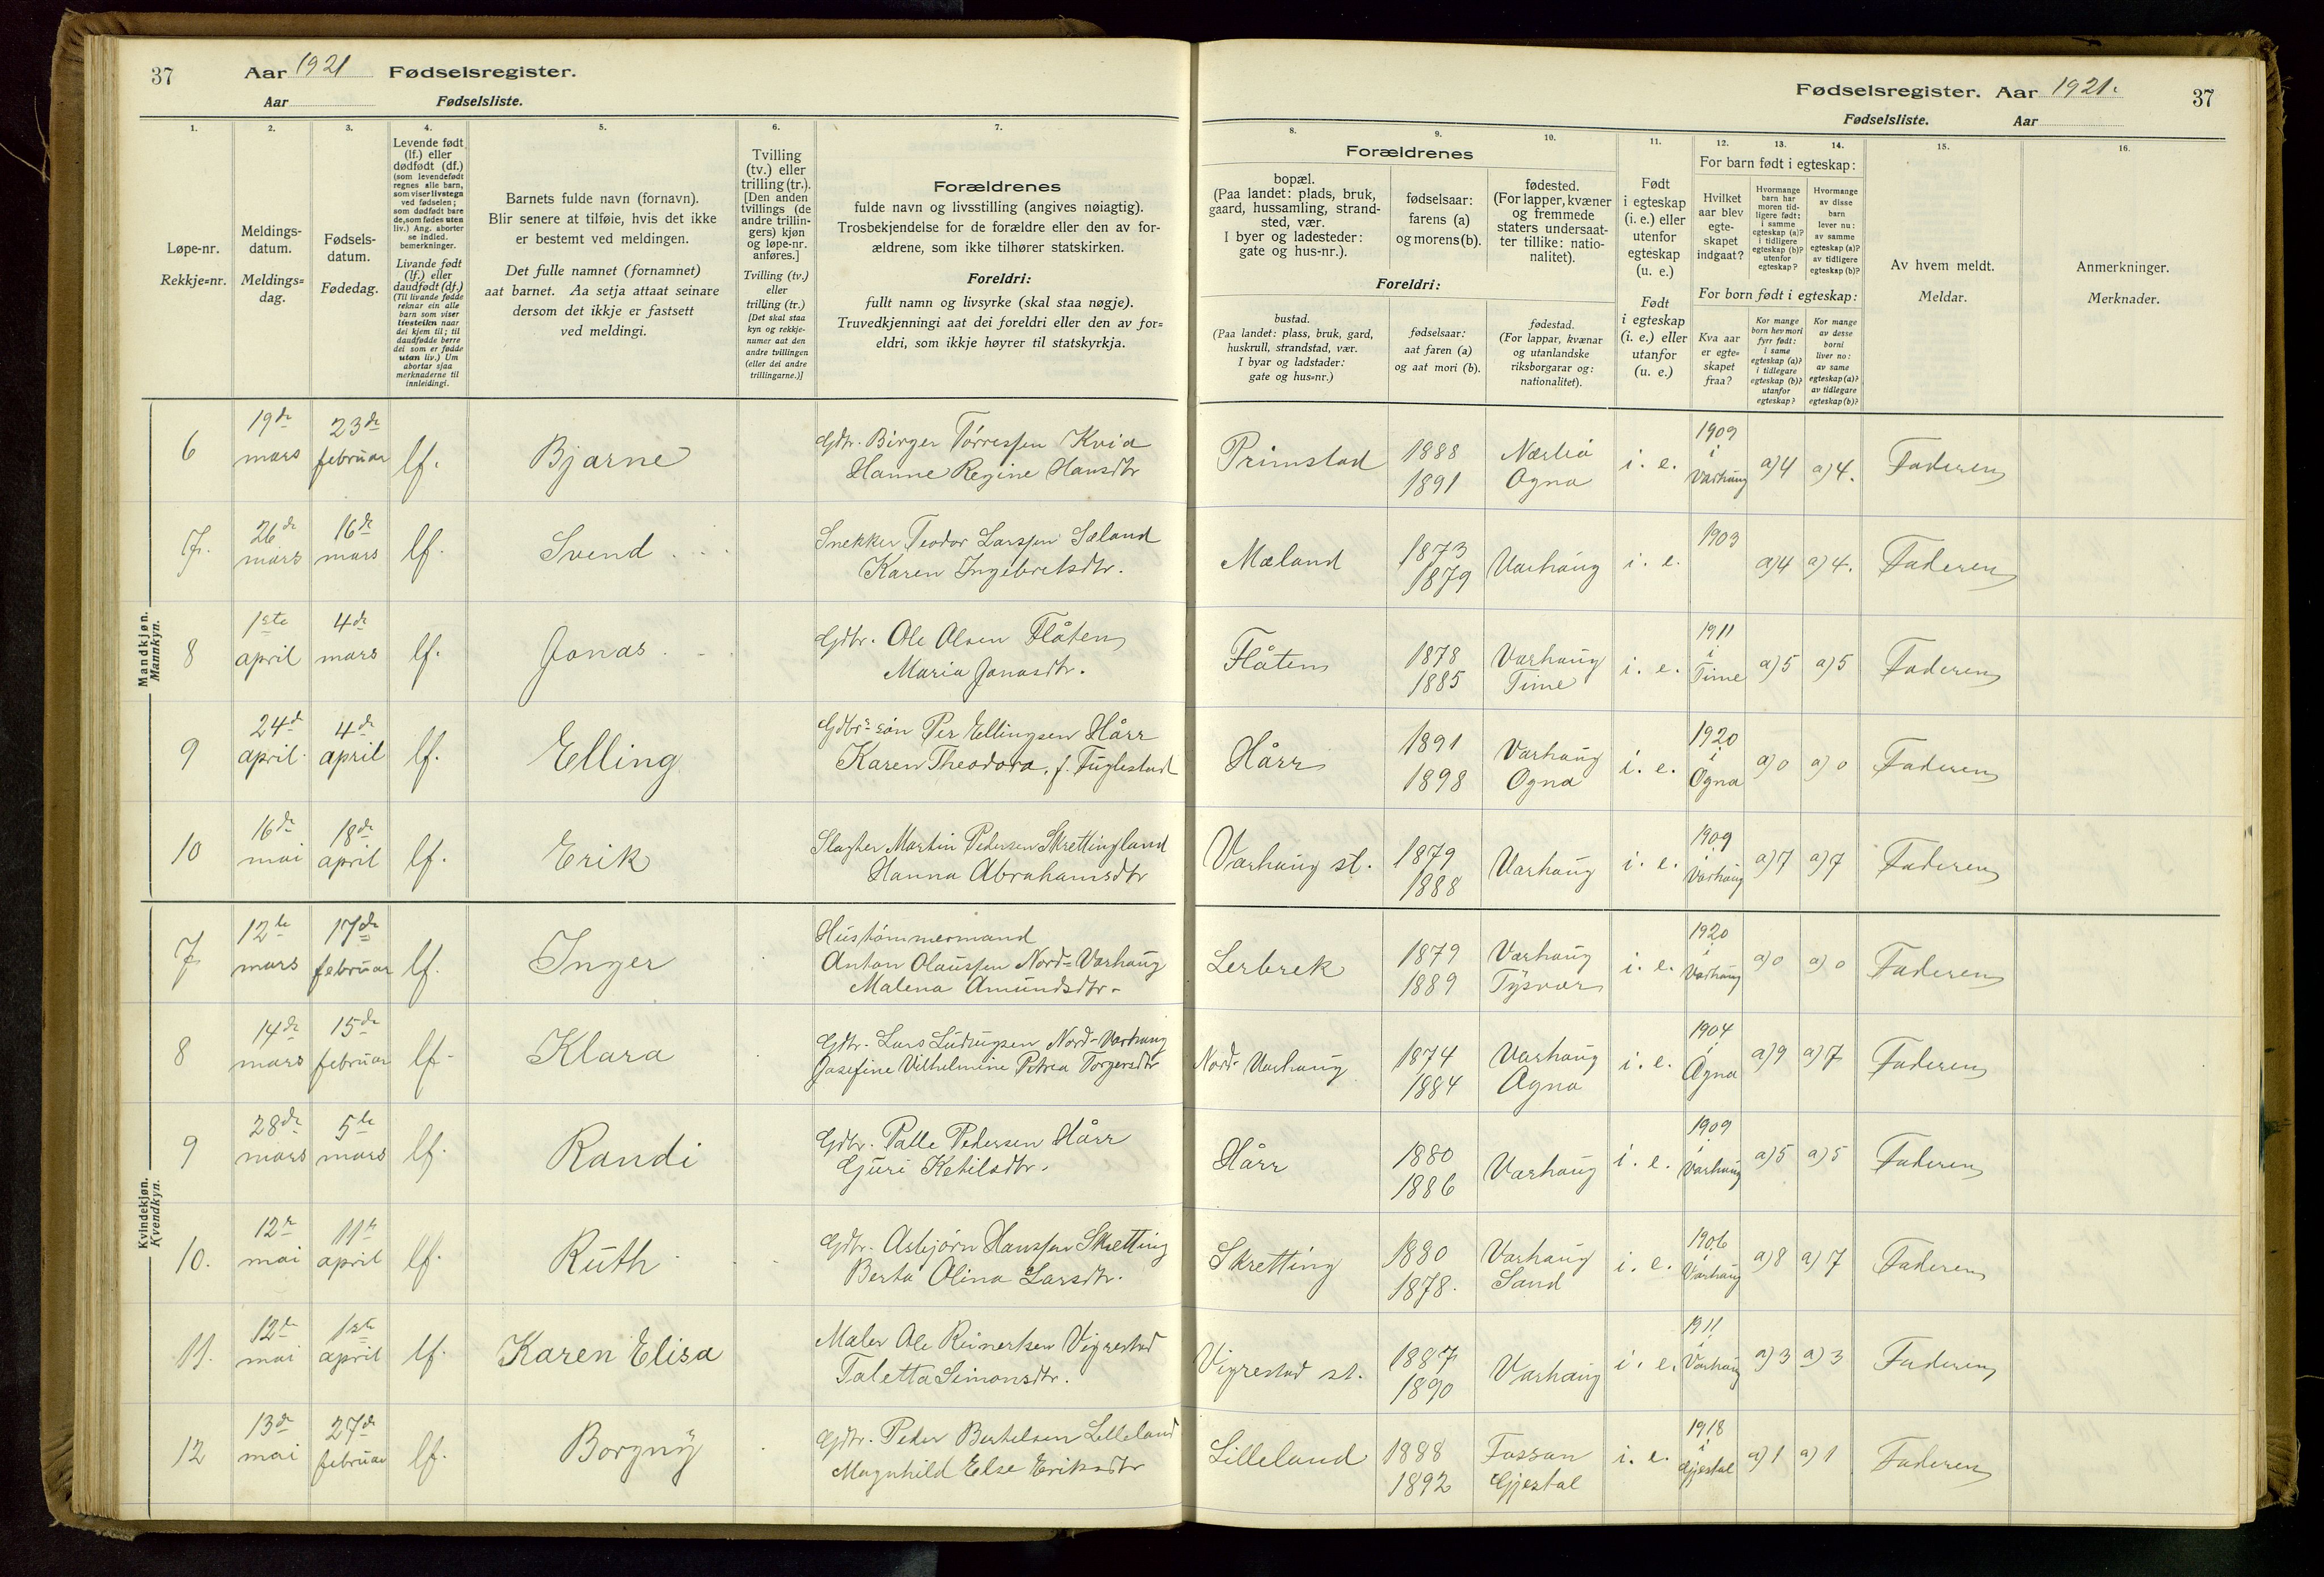 37 Aar 1921 Fødselsregister.
Aar Fødselsliste.
Fødselsregister. Aar 1921. 37
Fødselsliste. Aar
1. 2. 3. 4. 5. 6. 7.
Løpe-nr.
Rekkje=nr.
Meldings-
datum.
Meldings=
dag.
Fødsels-
datum.
Fødedag.
Levende født
(lf.) eller
dødfødt (df.)
(som levendefødt
regnes alle barn,
som viser livstegn
ved fødselen;
som dødfødt bare
de, som fødes uten
liv.) Ang. aborter
se indled.
bemerkninger.
Livande født
(lf.) eller
daudfødt (df.)
(Til livande fødde
reknar ein alle
barn som viser
livsteikn naar
dei kjem til; til
daudfødde berre
dei som er fødde
utan liv.) Um
abortar sjaa
merknaderne til
innleidingi.
Barnets fulde navn (fornavn).
Blir senere at tilføie, hvis det ikke
er bestemt ved meldingen.
Det fulle namnet (fornamnet)
aat barnet. Aa setja attaat seinare
dersom det ikkje er fastsett
ved meldingi.
Tvilling
(tv.) eller
trilling (tr.).
[Den anden
tvillings (de
andre trillin-
gers) kjøn
og løpe-nr.
anføres.]
Tvilling (tv.)
eller
trilling (tr.)
[Det skal staa
kyn og rekkje-
numer aat den
andre tvillingen
(eller dei andre
trillingarne.)]
Forældrenes
fulde navn og livsstilling (angives nøiagtig).
Trosbekjendelse for de forældre eller den av for-
ældrene, som ikke tilhører statskirken.
Foreldri:
fullt namn og livsyrke (skal staa nøgje).
Truvedkjenningi aat dei foreldri eller den av for=
eldri, som ikkje høyrer til statskyrkja.
8. 9. 10. 11. 12. 13. 14. 15. 16.
Forældrenes
bopæl.
(Paa landet: plads, bruk,
gaard, hussamling, strand-
sted, vær.
I byer og ladesteder:
gate og hus-nr.).
fødselsaar:
farens (a)
og morens (b).
fødested.
(For lapper, kvæner
og fremmede
staters undersaat-
ter tillike: natio-
nalitet).
Foreldri:
bustad.
(Paa landet: plass, bruk, gard,
huskrull, strandstad, vær.
I byar og ladstader:
gate og hus=nr.)
fødselsaar:
aat faren (a)
og aat mori (b).
fødestad.
(For lappar, kvænar
og utanlandske
riksborgarar og:
nationalitet).
Født
i egteskap
(i. e.) eller
utenfor
egteskap
(u. e.)
Født
i egteskap
(i. e.) eller
utanfor
(u. e.)
For barn født i egteskap:
Hvilket
aar blev
egte-
skapet
indgaat?
Hvormange
barn har
moren tid-
ligere født:
i samme
egteskap (a)?
i tidligere
egteskap (b)?
utenfor
egteskap?
Hvormange
av disse
barn
lever nu:
av samme
egteskap (a)?
av tidligere
egteskap (b)?
For born født i egteskap:
Kva aar
er egte=
skapet
fraa?
Kor mange
born hev mori
fyrr født:
i same
egteskap (a)?
i tidlegare
egteskap (b)?
utanfor
egteskap?
Kor mange
av desse
borni
liver no:
av same
egteskap (a)?
av tidlegare
egteskap (b)?
Av hvem meldt.
Meldar.
Anmerkninger.
Merknader.
Mandkjøn.
Mannkyn.
6 19de mars 23de februar lf. Bjarne Gdbr. Birger Tørressen Kvia
Hanne Regine Hansdtr
Primstad 1888 1891 Nærbø Ogna i. e. 1909 i Varhaug a) 4 a) 4. Faderen
7. 26de mars 16de mars lf. Svend Snekker Teodor Larssen Sæland
Karen Ingebretsdtr.
Mæland 1873 1879 Varhaug i. e. 1903 a) 4 a) 4. Faderen
8 1ste april 4de mars lf. Jonas Gdbr. Ole Olsen Flåten
Maria Jonasdtr.
Flåten 1878 1885 Varhaug Time i. e. 1911 i Time a) 5 a) 5 Faderen
9 24de april 4de april lf. Elling Gdbrs søn Per Ellingsen Hårr
Karen Theodora, f. Fuglestad
Hårr 1891 1898 Varhaug Ogna i. e. 1920 i Ogna a) 0 a) 0 Faderen
10 16de mai 18de april lf. Erik Slagter Martin Pedersen Skrettingland
Hanna Abrahamsdtr
Varhaug st. 1879 1888 Varhaug i. e. 1909 i Varhaug a) 7 a) 7 Faderen
Kvindekjøn.
Kvendkyn.
7 12te mars 17de februar lf. Inger Hustømmermand
Anton Olaussen Nord=Varhaug
Malena Amundsdtr.
Lerbrek 1879 1889 Varhaug Tysvær i. e. 1920 i Varhaug a) 0 a) 0 Faderen
8 14de mars 15de februar lf. Klara Gdbr. Lars Nord-Varhaug
Josefine Vilhelmine Petrea Torgersdtr
Nord-Varhaug 1874 1884 Varhaug Ogna i. e. 1904 i Ogna a) 9 a) 7 Faderen
9 28de mars 5te mars lf. Randi Gdbr. Palle Pedersen Hårr
Guri Ketilsdtr.
Hårr 1880 1886 Varhaug i. e. 1909 i Varhaug a) 5 a) 5 Faderen
10. 12te mai 11te april lf. Ruth Gdbr. Asbjørn Hanssen Skretting
Berta Olina Larsdtr.
Skretting 1880 1878. Varhaug Sand i. e. 1906 i Varhaug a) 8 a) 7 Faderen
11. 12te mai 1ste april lf. Karen Elisa Maler Ole Reinertsen Vigrestad
Taletta Simonsdtr.
Vigrestad st. 1887 1890 Varhaug i. e. 1911 i Varhaug a) 3 a) 3 Faderen
12 13de mai 27de februar lf. Borgny Gdbr. Peder Bertelsen Lilleland
Magnhild Else Eriksdtr
Lilleland 1888 1892 Fossan Gjestal i. e. 1918 i Gjestal a) 1 a) 1 Faderen